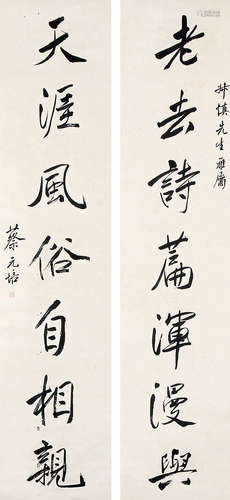 老去詩篇渾漫與
叔慎先生雅屬
天涯風俗自相親
蔡元培